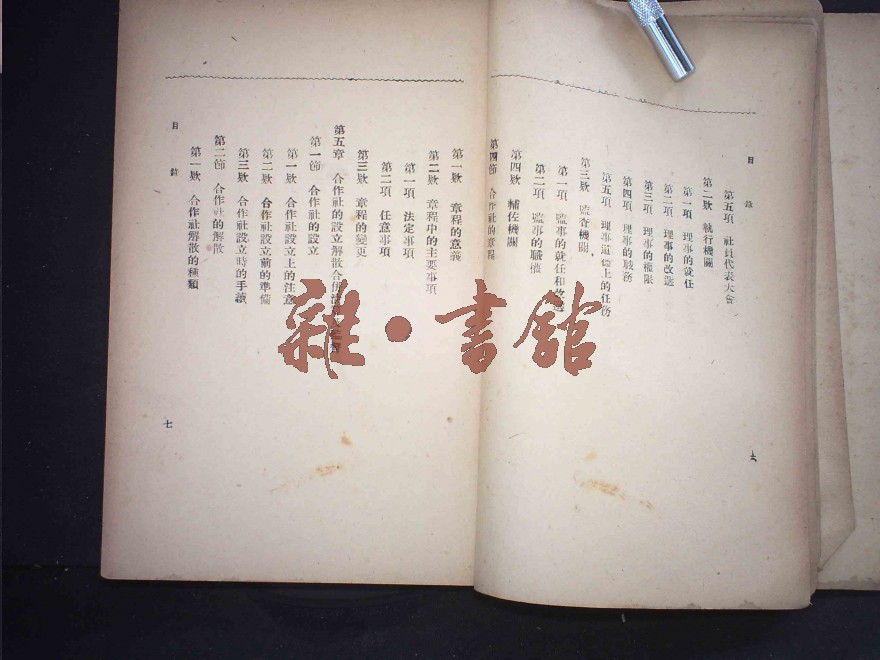 目錄
第五項 社員代表大會
第二欵 執行機關
第一項 理事的就任
第二項 理事的改選
第三項 理事的權限
第四項 理事的職務
第五項 理事道德上的任務
第三欵 監查機關
第一項 監事的就任和改選
第二項 監事的職權
第四欵 輔佐機關
第四節 合作社的章程
六
第一欵 章程的意義
第二欵 章程中的主要事項
第一項 法定事項
第二項 任意事項
第三欵 章程的變更
第五章 合作社的設立解散合併
第一節 合作社的設立
第一欵 合作社設立上的注意
第二欵 合作社設立前的準備
第三欵 合作社設立時的手續
第二節 合作社的解散
第一欵 合作社解散的種類
目錄
七
雜·書館